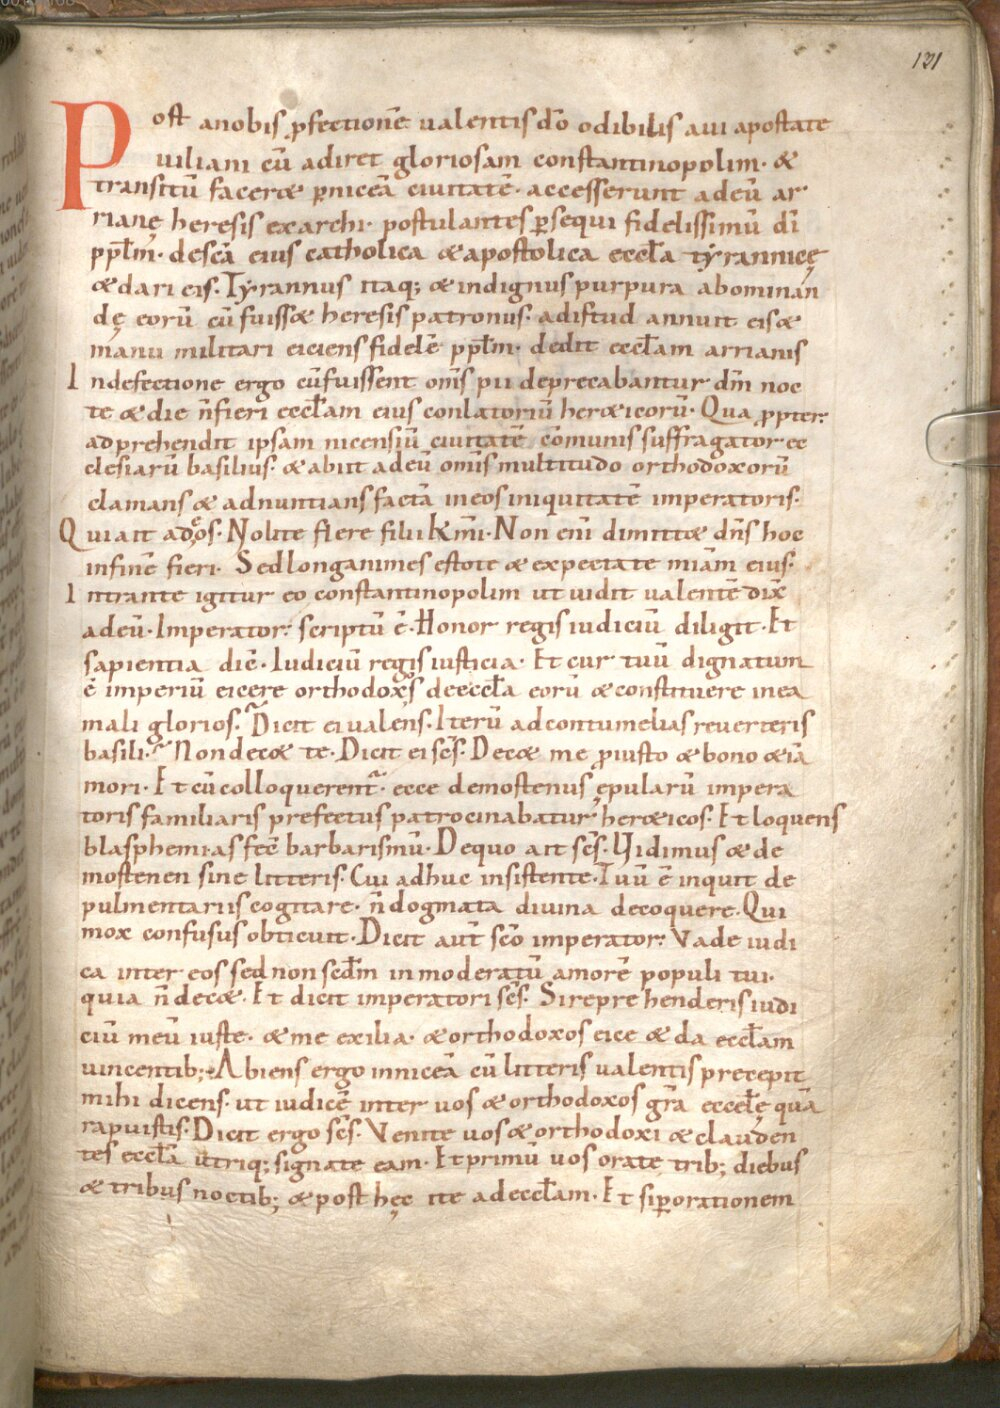 121
Post anobis ꝓfectionē ualentis dō odibilis aui apostate
uiliani cū adiret gloriosam constantinopolim· &
transitū facer& ꝑniceā ciuitatē· accesserunt adeū ar
rianę heresis exarchi· postulantes ꝑsequi fidelissimū dī
ppl̄m· descā eius catholica & apostolica eccl̄a tyrannicę
& dari eis· Tyrannus itaq; & indignus purpura abominan
dę eorū cū fuiss& heresis patronus· adistud annuit eis &
manu militari eiciens fidelē ppl̄m· dedit eccl̄am arrianis
Indefectione ergo cū fuissent om̄s pii deprecabantur dm̄ noc
te & die n̄ fieri eccl̄am eius conlatoriū her&icorū· Qua ꝓpter·
adprehendit ipsam nicensiū ciuitatē cōmunis suffragator ec
clesiarū basilius· & abiit adeū om̄is multitudo orthodoxorū
clamans & adnuntians factā ineos iniquitatē imperatoris·
Qui ait ad eos· Nolite flere filii km̄i· Non eni dimitt& dn̄s hoc
infinē fieri· Sed longanimes estote & expectate miām eius·
Intrante igitur eo constantinopolim ut uidit ualentē dix̄
adeū· Imperator· scriptū ē· Honor regis iudiciū diligit· Et
sapientia dic̄· Iudiciū regis iusticia· Et cur tuū dignatum
ē imperiū eicere orthodoxos deeccl̄a eorū & constituere inea
mali glorios· Dicit ei ualens· Iterū ad contumelias reuerteris
basili· Non dec& te· Dicit ei sc̄s· Dec& me ꝓ iusto & bono & iā
mori· Et cū colloquerent· ecce demostenus ępularū impera
toris familiaris prefectus patrocinabatur her&icos· Et loquens
blasphemias fec̄ barbarismū· Dequo ait sc̄s· Uidimus & de
mostenen sine litteris· Cui adhuc insistente· Tuū ē inquit de
pulmentariis cogitare· n̄ dogmata diuina decoquere· Qui
mox confusus obticuit· Dicit aut̄ sc̄o imperator· Vade iudi
ca inter eos sed non scd̄m inmoderatū amorē populi tui·
quia n̄ dec&· Et dicit imperatori sc̄s· Si reprehenderis iudi
ciū meū iuste· & me exilia· & orthodoxos eice & da eccl̄am
uincentib;· Abiens ergo inniceā cū litteris ualentis precepit
mihi dicens· ut iudicē inter uos & orthodoxos gr̄a eccl̄ę quā
rapuistis· Dicit ergo sc̄s· Venite uos & orthodoxi & clauden
tes eccl̄a utriq; signate eam· Et primū uos orate trib; diebus
& tribus noctib; & post hęc ite ad eccl̄am· Et si ꝑ orationem